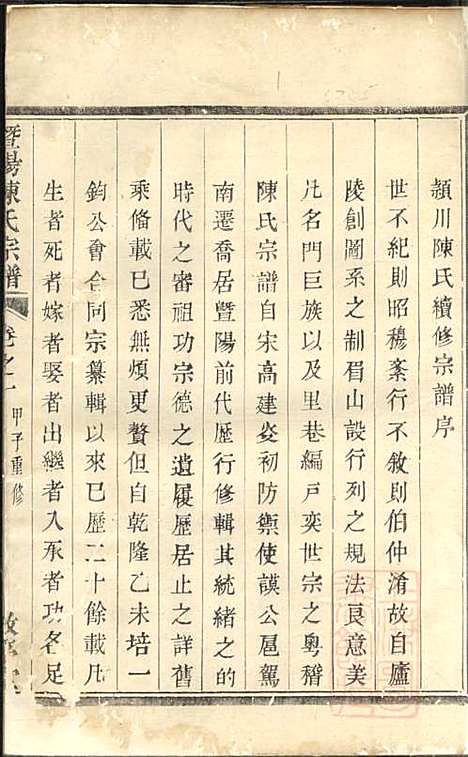 頴川陳氏續修宗譜序
世不紀則昭穆紊行不敘則伯仲淆故自廬
陵創圖系之制眉山設行列之規法良意美
凡名門巨族以及里巷編戸奕世宗之粤稽
陳氏宗譜自宋高建炎初防禦使謨公扈駕
南遷喬居曁陽前代歷行修輯其統緒之的
時代之審祖功宗德之遺履歷居止之詳舊
乘俻載已悉無煩更贅但自乾隆乙未培一
鈞公會合同宗纂輯以來已歷二十餘載凡
生者死者嫁者娶者出繼者入承者功名足
暨陽陳氏宗譜
卷之一
甲子重修